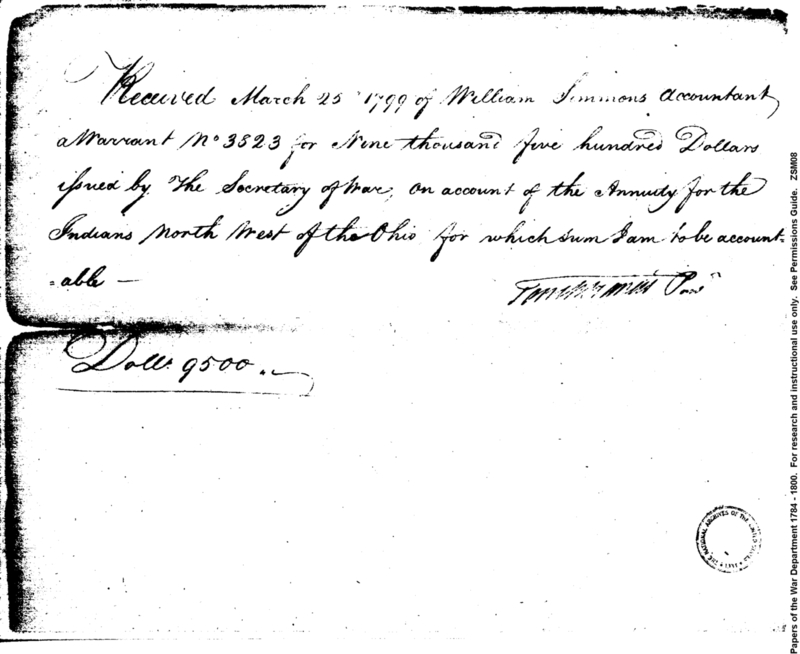 Received March 25 1799 of William Simmons Accountant,
a Warrant No 3823 for Nine thousand five hundred Dollars
issued by The Secretary of War, on account of the Annuity for the
Indians North West of the Ohio for which sum I am to be account=
=able —
Dolls. 9500.
THE NATIONAL ARCHIVES OF THE UNITED STATES
Papers of the War Department 1784 - 1800. For research and instructional use only. See Permissions Guide. ZSM08